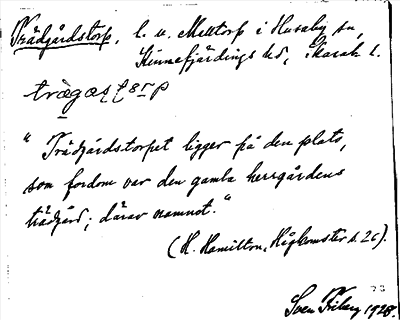 Trädgårdstorp, l. u. Melltorp i Husaby sn,
Kinnefjärdings hd, Skarab. l.
" Trädgårdstorpet ligger på den plats,
som fordom var den gamla herrgårdens
trädgård; därav namnet."
(H. Hamilton, Hågkomster s. 26).
Sven Friberg 1928.